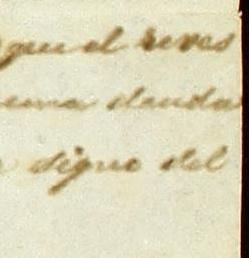 que el reves
una deuda
sigue del